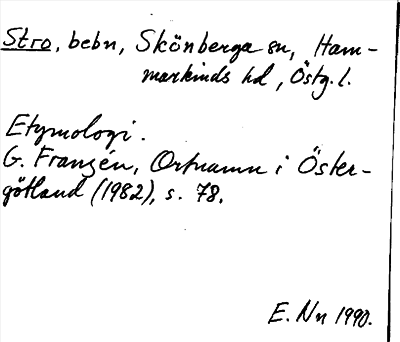 Stro, bebn, Skönberga sn, Ham-
markinds hd, Östg. l.
Etymologi.
G. Franzén, Ortnamn i Öster-
götland (1982), s. 78.
E. Nn 1990.